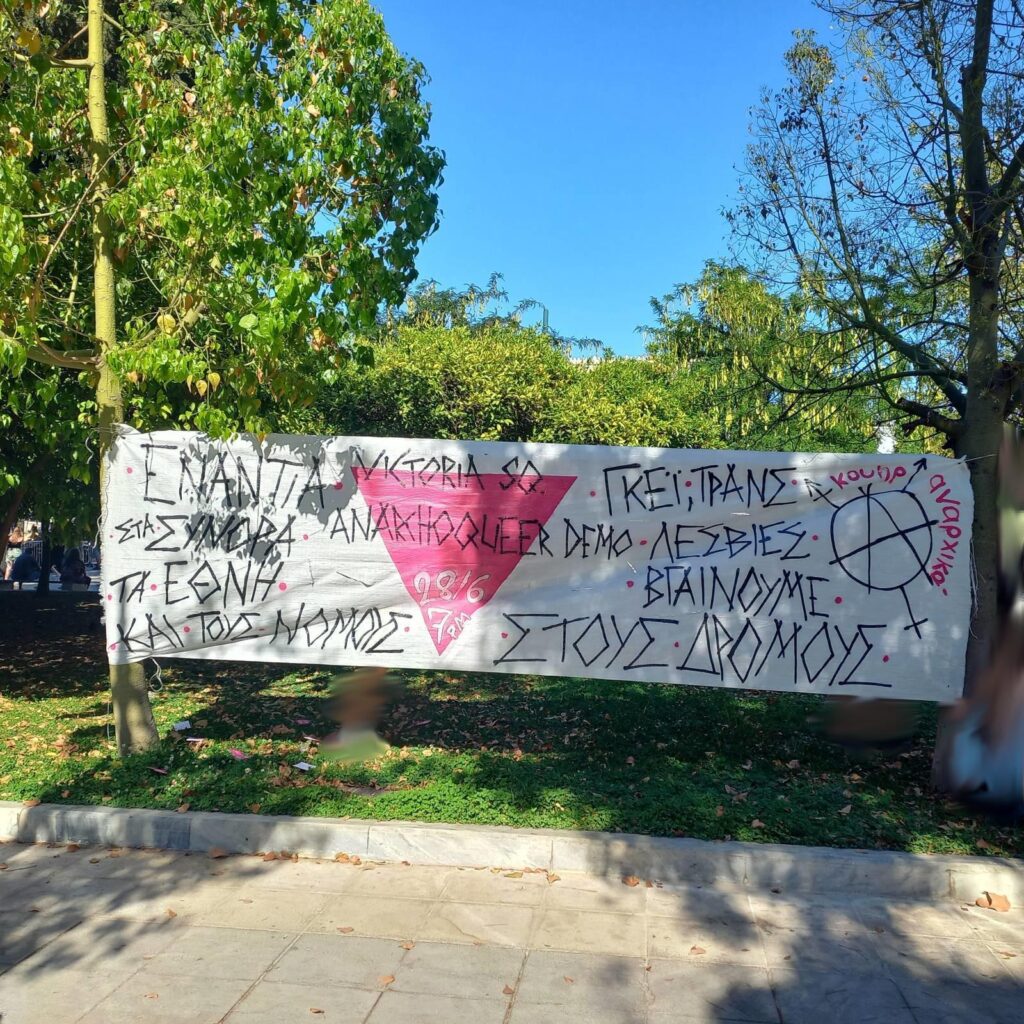 ΕΝΑΝΤΙΑ
ΣΤΑ ΣΥΝΟΡΑ
ΤΑ ΕΘΝΗ
ΚΑΙ ΤΟΥΣ ΝΟΜΟΥΣ
VICTORIA SQ.
ANARCHOQUEER DEMO
28/6
7PM
ΓΚΕΪ, ΤΡΑΝΣ
ΛΕΣΒΙΕΣ
ΒΓΑΙΝΟΥΜΕ
ΣΤΟΥΣ ΔΡΟΜΟΥΣ
κουηρ αναρχικα